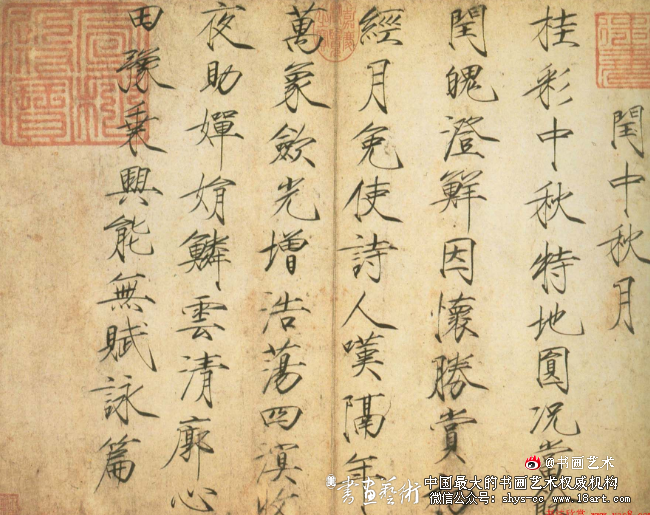 閏中秋月
桂彩中秋特地圓況當
閏魄澄鮮因懷勝賞
經月免使詩人嘆隔年
萬象歛光增浩蕩四溟收
夜助嬋娟鱗雲清廓心
田豫乘興能無賦詠篇
@书画艺术
書畫藝術 中国最大的书画艺术权威机构
微信公众号：shys-cc www.18art.com